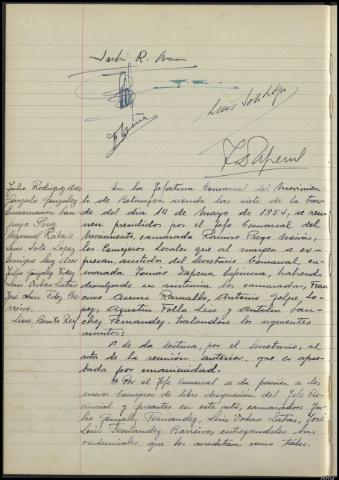 Julio R.
Luis Sote López
T. Sapena
Julio Rodríguez
Gonzalo González
Encarnación San-
Luis Sote López
Enrique
Julio González Fdez
José Luis Fdez Ba-
rreiro.
Luis Benito Rey
En la Jefatura Comarcal del Movimien-
to de Betanzos siendo las siete de la tar-
de del día 14 de Mayo de 1954, se reu-
nen presididos por el Jefe Comarcal del
Movimiento, camarada Ramiro Prego
los Consejeros Locales que al margen se ex-
presan, asistido del Secretario Comarcal, ca-
marada Tomás Sapena Espinosa, habiendo
disculpado su asistencia los camaradas,
Ramallo, Antonio Golpe,
Agustín Folla Leis y Antolín Sán-
chez Fernández. Tratándose los siguientes
asuntos:
se da lectura, por el Secretario, al
acta de la reunión anterior, que es apro-
bada por unanimidad.
Por el Jefe Comarcal se da posesión a los
nuevos Consejeros de libre designación del Jefe Pro-
vincial y presentes en este acto, camaradas Ju-
lio González Fernández, Luis Orbes Latas, José
Luis Fernández Barreiro, entregándoles las
credenciales que les acreditan como tales.